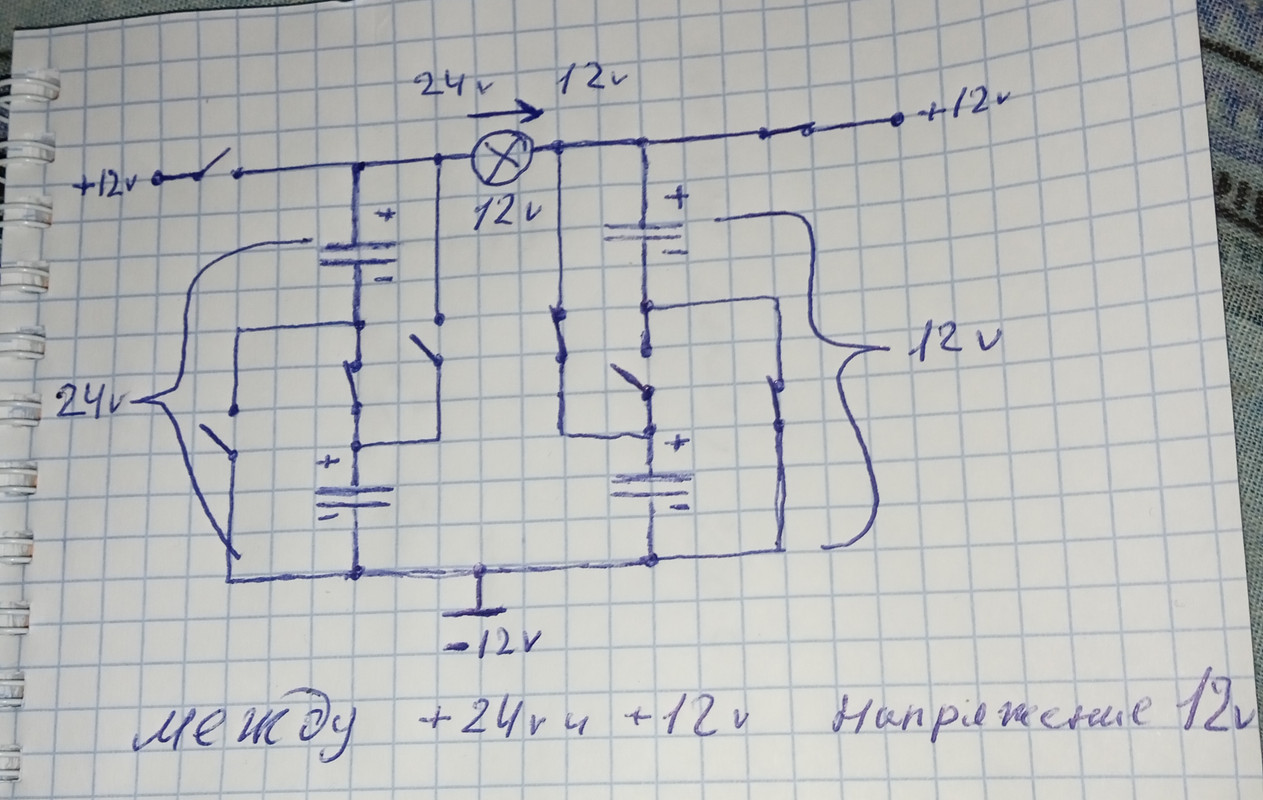 24v 12v
+12v
+12v
12v
+
-
+
-
24v
12v
+
-
+
-
-12v
между +24v и +12v Напряжение 12v